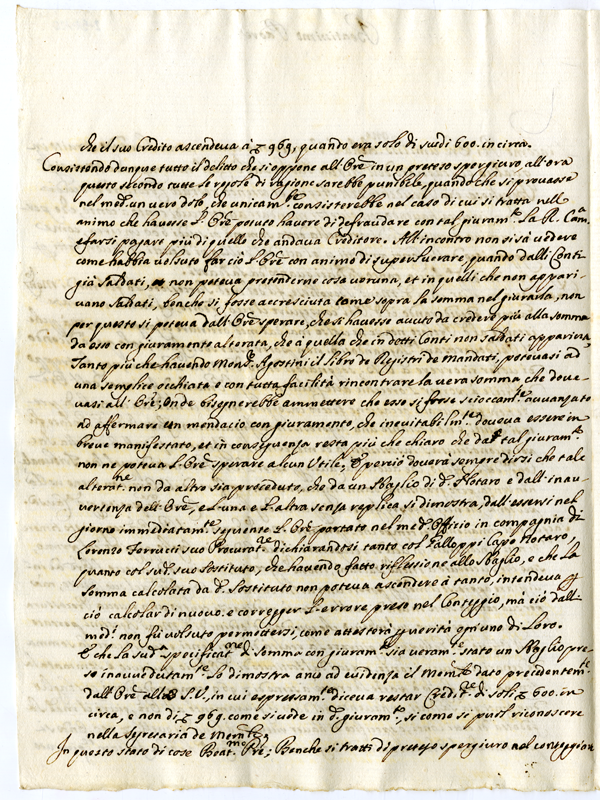 che il suo Credito ascendeua à ꝫ 969, quando era solo di scudi 600. in circa.
Consistendo dunque tutto il delitto che si oppone all'Ore in un preteso spergiuro, all'ora
questo secondo tutte le regole di ragione sarebbe punibile, quando che si prouasse
nel med.o un uero dolo, che unicam.te consisterebbe nel caso di cui si tratta nell'
animo che hauesse l'Ore potuto hauere di defraudare con tal giuram.to la R. Cam.a
e farsi pagare più di quello che andaua Creditore. All'incontro non si sà uedere
come habbia uolsuto far ciò l'Ore con animo di superlucrare, quando dalli Conti
già saldati, non poteua pretenderne cosa ueruna, et in quelli che non appari-
uano saldati, benche si fosse accresciuta come sopra la somma nel giurarla, non
per questo si poteua dall'Ore sperare, che si hauesse auuto da credere più alla somma
da esso con giuramento alterata, che à quella che in dotti Conti non saldati appariua,
Tanto più che hauendo Mons.r Agostini il libro de Registri de Mandati, poteuasi ad
una semplice occhiata e con tutta facilità rincontrare la uera somma che doue-
uasi all'Ore; Onde bisognerebbe ammettere che esso si fosse scioccam.te auuanzato
ad affermare un mendacio con giuramento, che ineuitabilm.te doueua essere in
breue manifestato, et in conseguenza resta più che chiaro che da tal giuram.to
non ne poteua l'Ore sperare alcun Utile, E perciò douerà sempre dirsi che tale
alterat.ne non da altro sia proceduto, che da un sbaglio di d.o Notaro e dall'inau-
uertenza dell'Ore, e l'una e l'altra senza replica si dimostra, dall'essersi nel
giorno immediatam.te seguente l'Ore portato nel med.o Officio in compagnia di
Lorenzo Ferrucci suo Procurat.re dichiarandosi tanto col Galloppi Capo Notaro,
quanto col sud.o suo Sostituto, che hauendo fatto riflessione allo sbaglio, e che la
somma calcolata da d.o Sostituto non poteua ascendere à tanto, intendeua p
ciò calcolar di nuouo e corregger l'errore preso nel Conteggio, mà ciò dalli
med.i non fù uolsuto permettersi, come attestorà p uerità ogn'uno di Loro.
E che la sud.a specificat.ne di somma con giuram.to sia ueram.te stato un sbaglio pre-
so inauuedutam.te lo dimostra anco ad euidenza il Mem.le dato precedentem.te
dall'Ore alla S.V., in cui espressam.te diceua restar Cred.re di soli ꝫ 600. in
circa, e non di ꝫ 969. come si uede in d.o giuram.to, si come si puol riconoscere
nella Segretaria de Mem.li
In questo stato di cose Beat.mo Pre; Benche si tratti di preteso spergiuro nel conteggiare